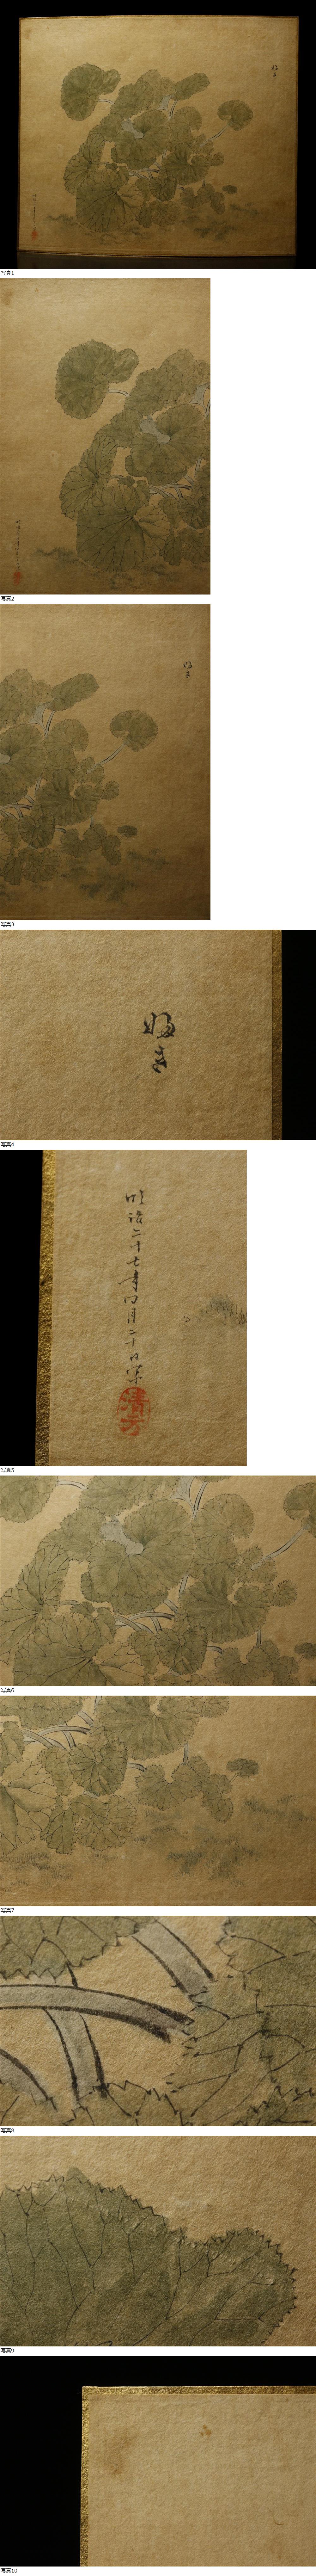 写真1
写真2
写真3
ふき
写真4
明治二十七年四月二十日
清方
写真5
写真6
写真7
写真8
写真9
写真10